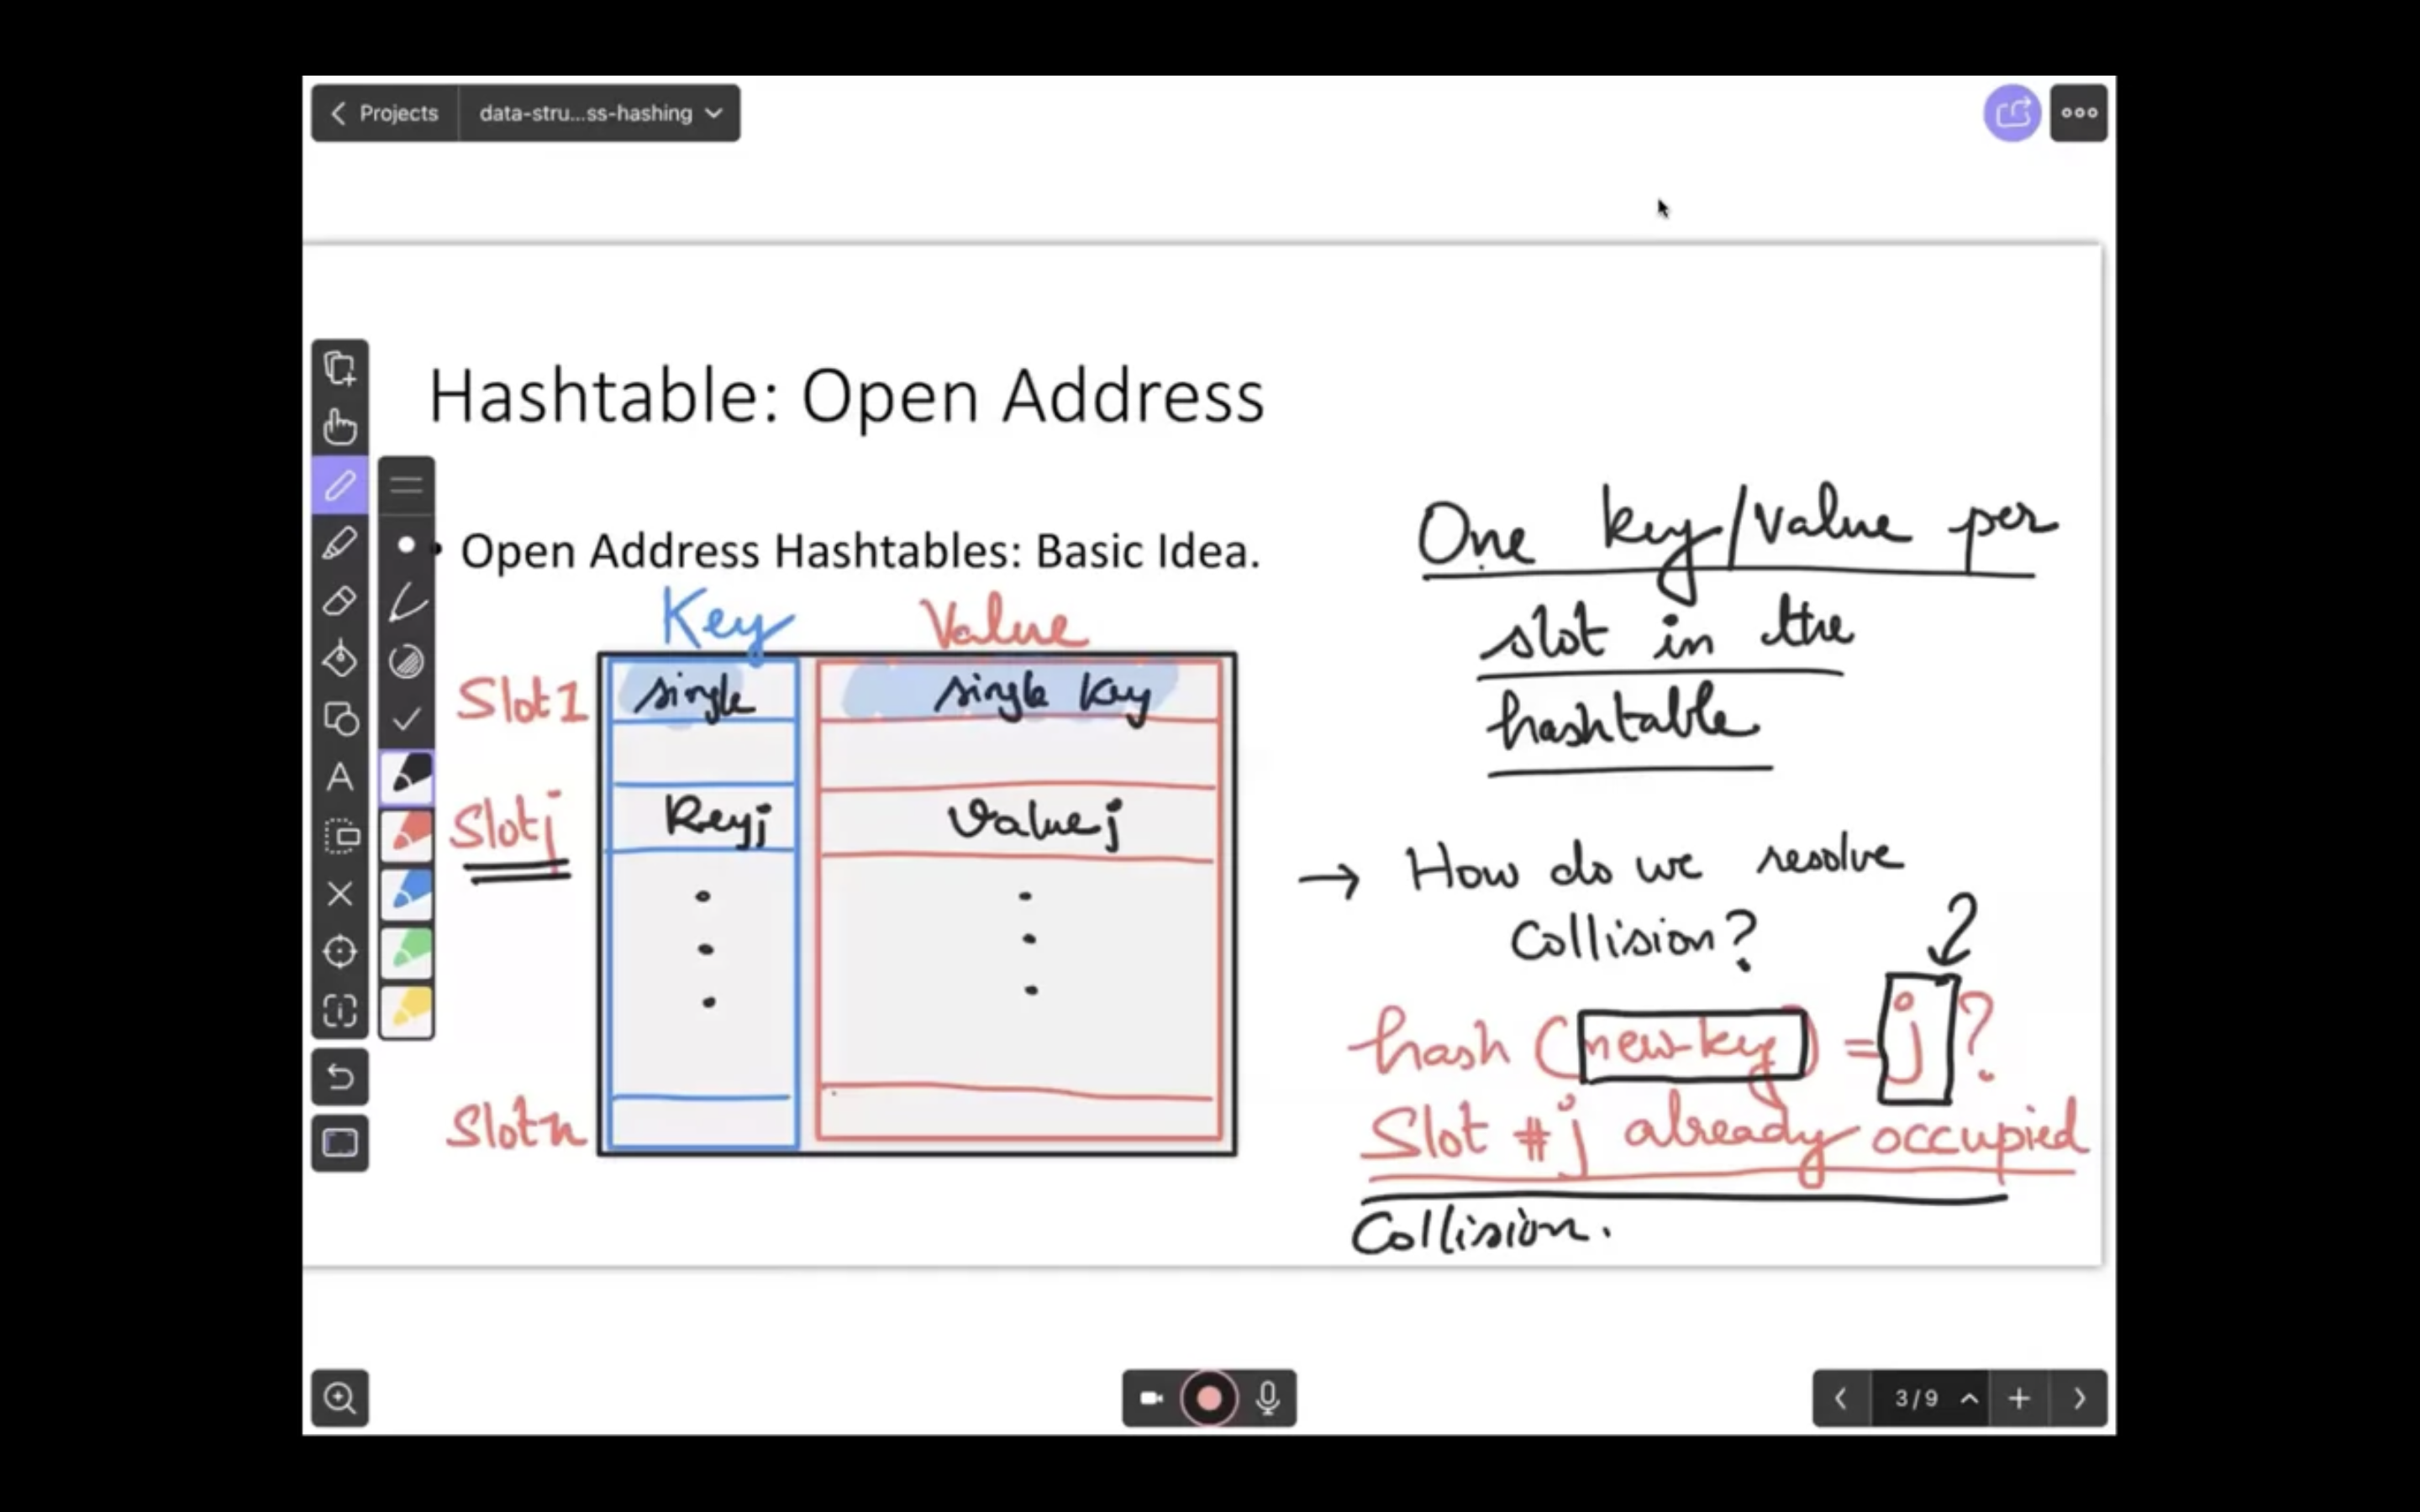 Projects
data-stru...ss-hashing
Hashtable: Open Address
• Open Address Hashtables: Basic Idea.
Key Value
Slot 1 single single key
Slot j Key j Value j
Slot n
One key/value per
slot in the
hashtable
→ How do we resolve
collision?
hash (new-key) = j?
Slot #j already occupied
Collision.
3/9